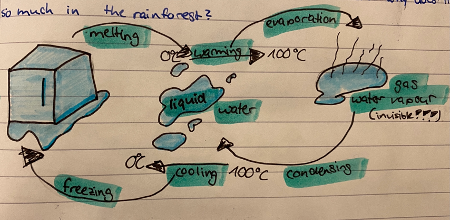 so much in the rainforest?
melting
evaporation
0°C warming 100°C
liquid
water
gas
water vapour
(invisible???)
0°C cooling 100°C
condensing
freezing